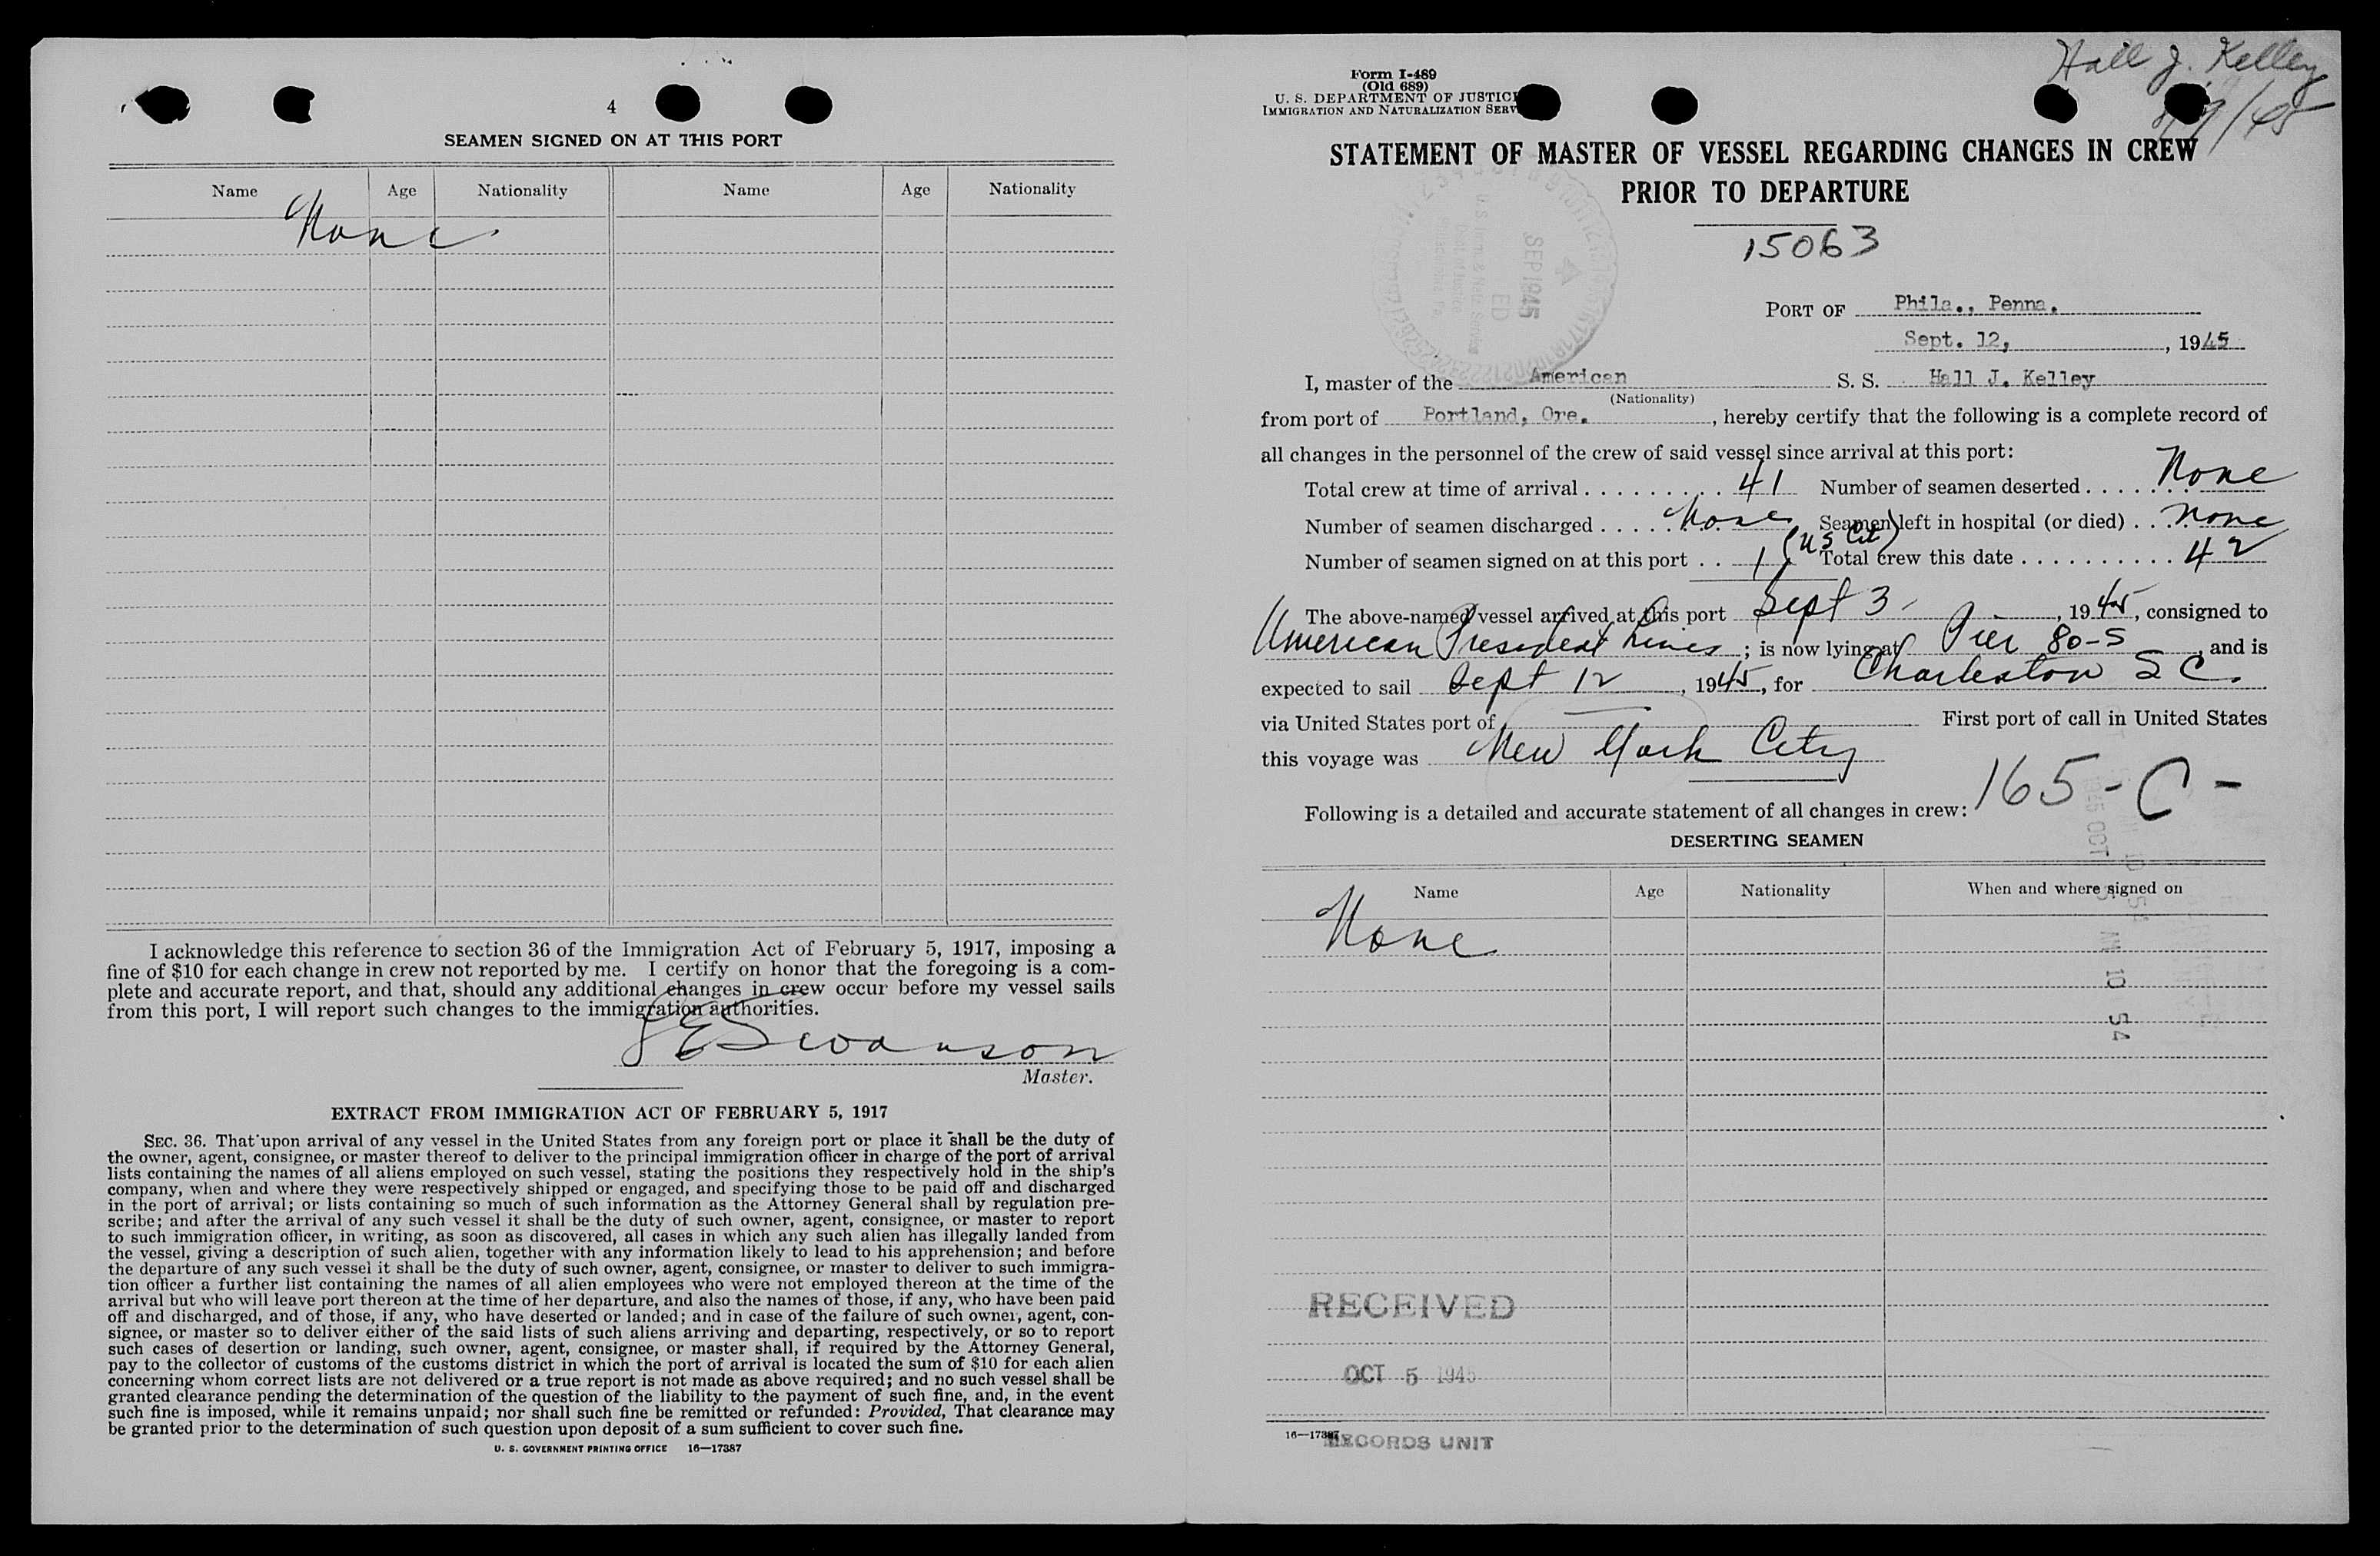 4
SEAMEN SIGNED ON AT THIS PORT
Name Age Nationality Name Age Nationality
None
I acknowledge this reference to section 36 of the Immigration Act of February 5, 1917, imposing a
fine of $10 for each change in crew not reported by me. I certify on honor that the foregoing is a com-
plete and accurate report, and that, should any additional changes in crew occur before my vessel sails
from this port, I will report such changes to the immigration authorities.
Swanson
Master.
EXTRACT FROM IMMIGRATION ACT OF FEBRUARY 5, 1917
SEC. 36. That upon arrival of any vessel in the United States from any foreign port or place it shall be the duty of
the owner, agent, consignee, or master thereof to deliver to the principal immigration officer in charge of the port of arrival
lists containing the names of all aliens employed on such vessel, stating the positions they respectively hold in the ship's
company, when and where they were respectively shipped or engaged, and specifying those to be paid off and discharged
in the port of arrival; or lists containing so much of such information as the Attorney General shall by regulation pre-
scribe; and after the arrival of any such vessel it shall be the duty of such owner, agent, consignee, or master to report
to such immigration officer, in writing, as soon as discovered, all cases in which any such alien has illegally landed from
the vessel, giving a description of such alien, together with any information likely to lead to his apprehension; and before
the departure of any such vessel it shall be the duty of such owner, agent, consignee, or master to deliver to such immigra-
tion officer a further list containing the names of all alien employees who were not employed thereon at the time of the
arrival but who will leave port thereon at the time of her departure, and also the names of those, if any, who have been paid
off and discharged, and of those, if any, who have deserted or landed; and in case of the failure of such owner, agent, con-
signee, or master so to deliver either of the said lists of such aliens arriving and departing, respectively, or so to report
such cases of desertion or landing, such owner, agent, consignee, or master shall, if required by the Attorney General,
pay to the collector of customs of the customs district in which the port of arrival is located the sum of $10 for each alien
concerning whom correct lists are not delivered or a true report is not made as above required; and no such vessel shall be
granted clearance pending the determination of the question of the liability to the payment of such fine, and, in the event
such fine is imposed, while it remains unpaid; nor shall such fine be remitted or refunded: Provided, That clearance may
be granted prior to the determination of such question upon deposit of a sum sufficient to cover such fine.
U. S. GOVERNMENT PRINTING OFFICE 16—17387
Hall J. Kelley
Form I-489
(Old 689)
U. S. DEPARTMENT OF JUSTICE
IMMIGRATION AND NATURALIZATION SERV
STATEMENT OF MASTER OF VESSEL REGARDING CHANGES IN CREW
PRIOR TO DEPARTURE
15063
PORT OF Phila., Penna.
Sept. 12, , 1945
I, master of the American S. S. Hall J. Kelley
(Nationality)
from port of Portland, Ore. , hereby certify that the following is a complete record of
all changes in the personnel of the crew of said vessel since arrival at this port:
Total crew at time of arrival . . . . . . . . . 41 Number of seamen deserted . . . . . . . None
Number of seamen discharged . . . . . None Seamen left in hospital (or died) . . . None
Number of seamen signed on at this port . . 1 (US Cit) Total crew this date . . . . . . . . . . 42
The above-named vessel arrived at this port Sept 3 , 1945, consigned to
American President Lines ; is now lying at Pier 80-S , and is
expected to sail Sept 12 , 1945, for Charleston S C.
via United States port of — First port of call in United States
this voyage was New York City
Following is a detailed and accurate statement of all changes in crew: 165-C-
DESERTING SEAMEN
Name Age Nationality When and where signed on
None
RECEIVED
OCT 5 1945
16—17387
RECORDS UNIT